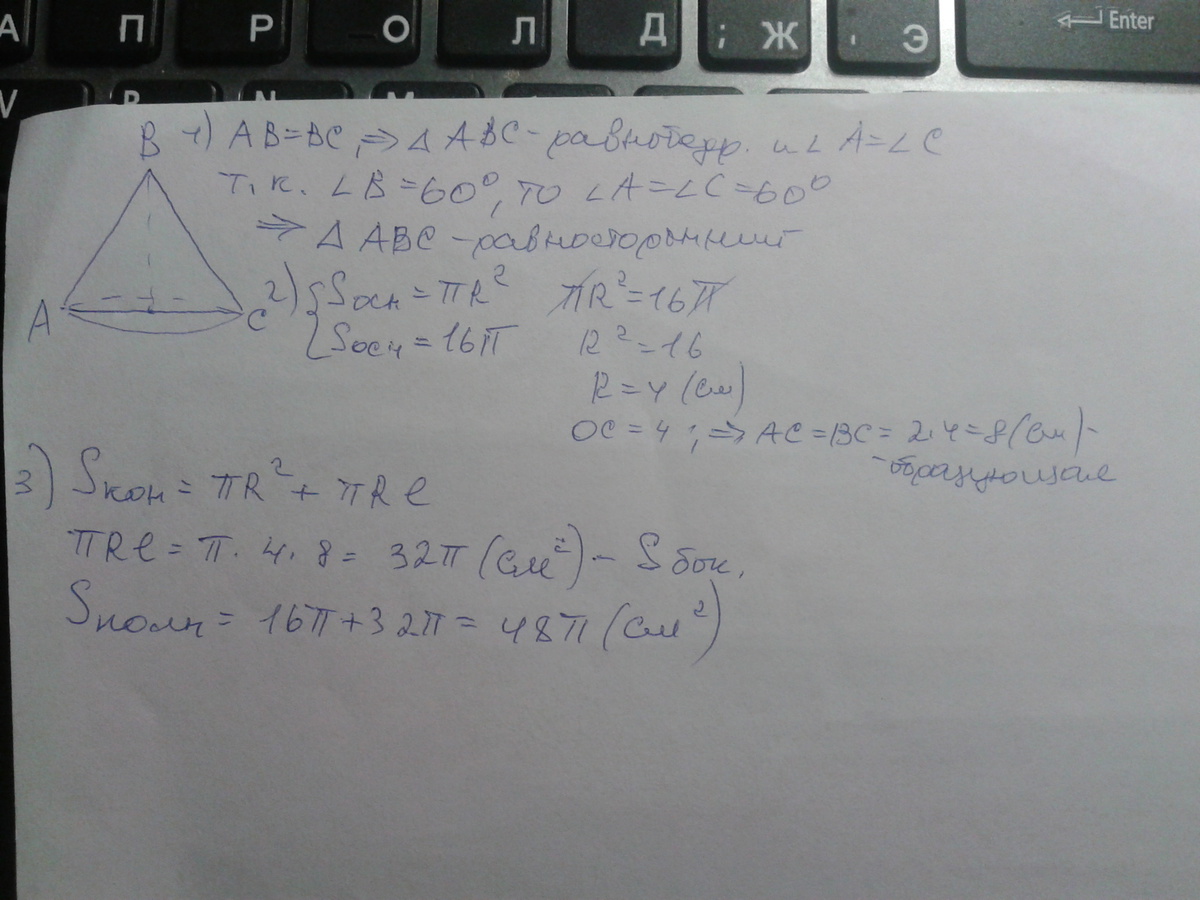 А П Р О Л Д ; Ж ' Э Enter
V B N M
B 1) AB=BC, ⇒ Δ ABC - равнобедр. и ∠A=∠C
т.к. ∠B=60°, то ∠A=∠C=60°
⇒ Δ ABC - равносторонний
A C 2) { Sосн = πR² πR²=16π
Sосн = 16π R²=16
R=4 (см)
OC=4; ⇒ AC=BC=2·4=8(см)-
- образующая
3) Sкон = πR² + πRl
πRl = π·4·8 = 32π (см²) - Sбок.
Sполн = 16π+32π = 48π (см²)